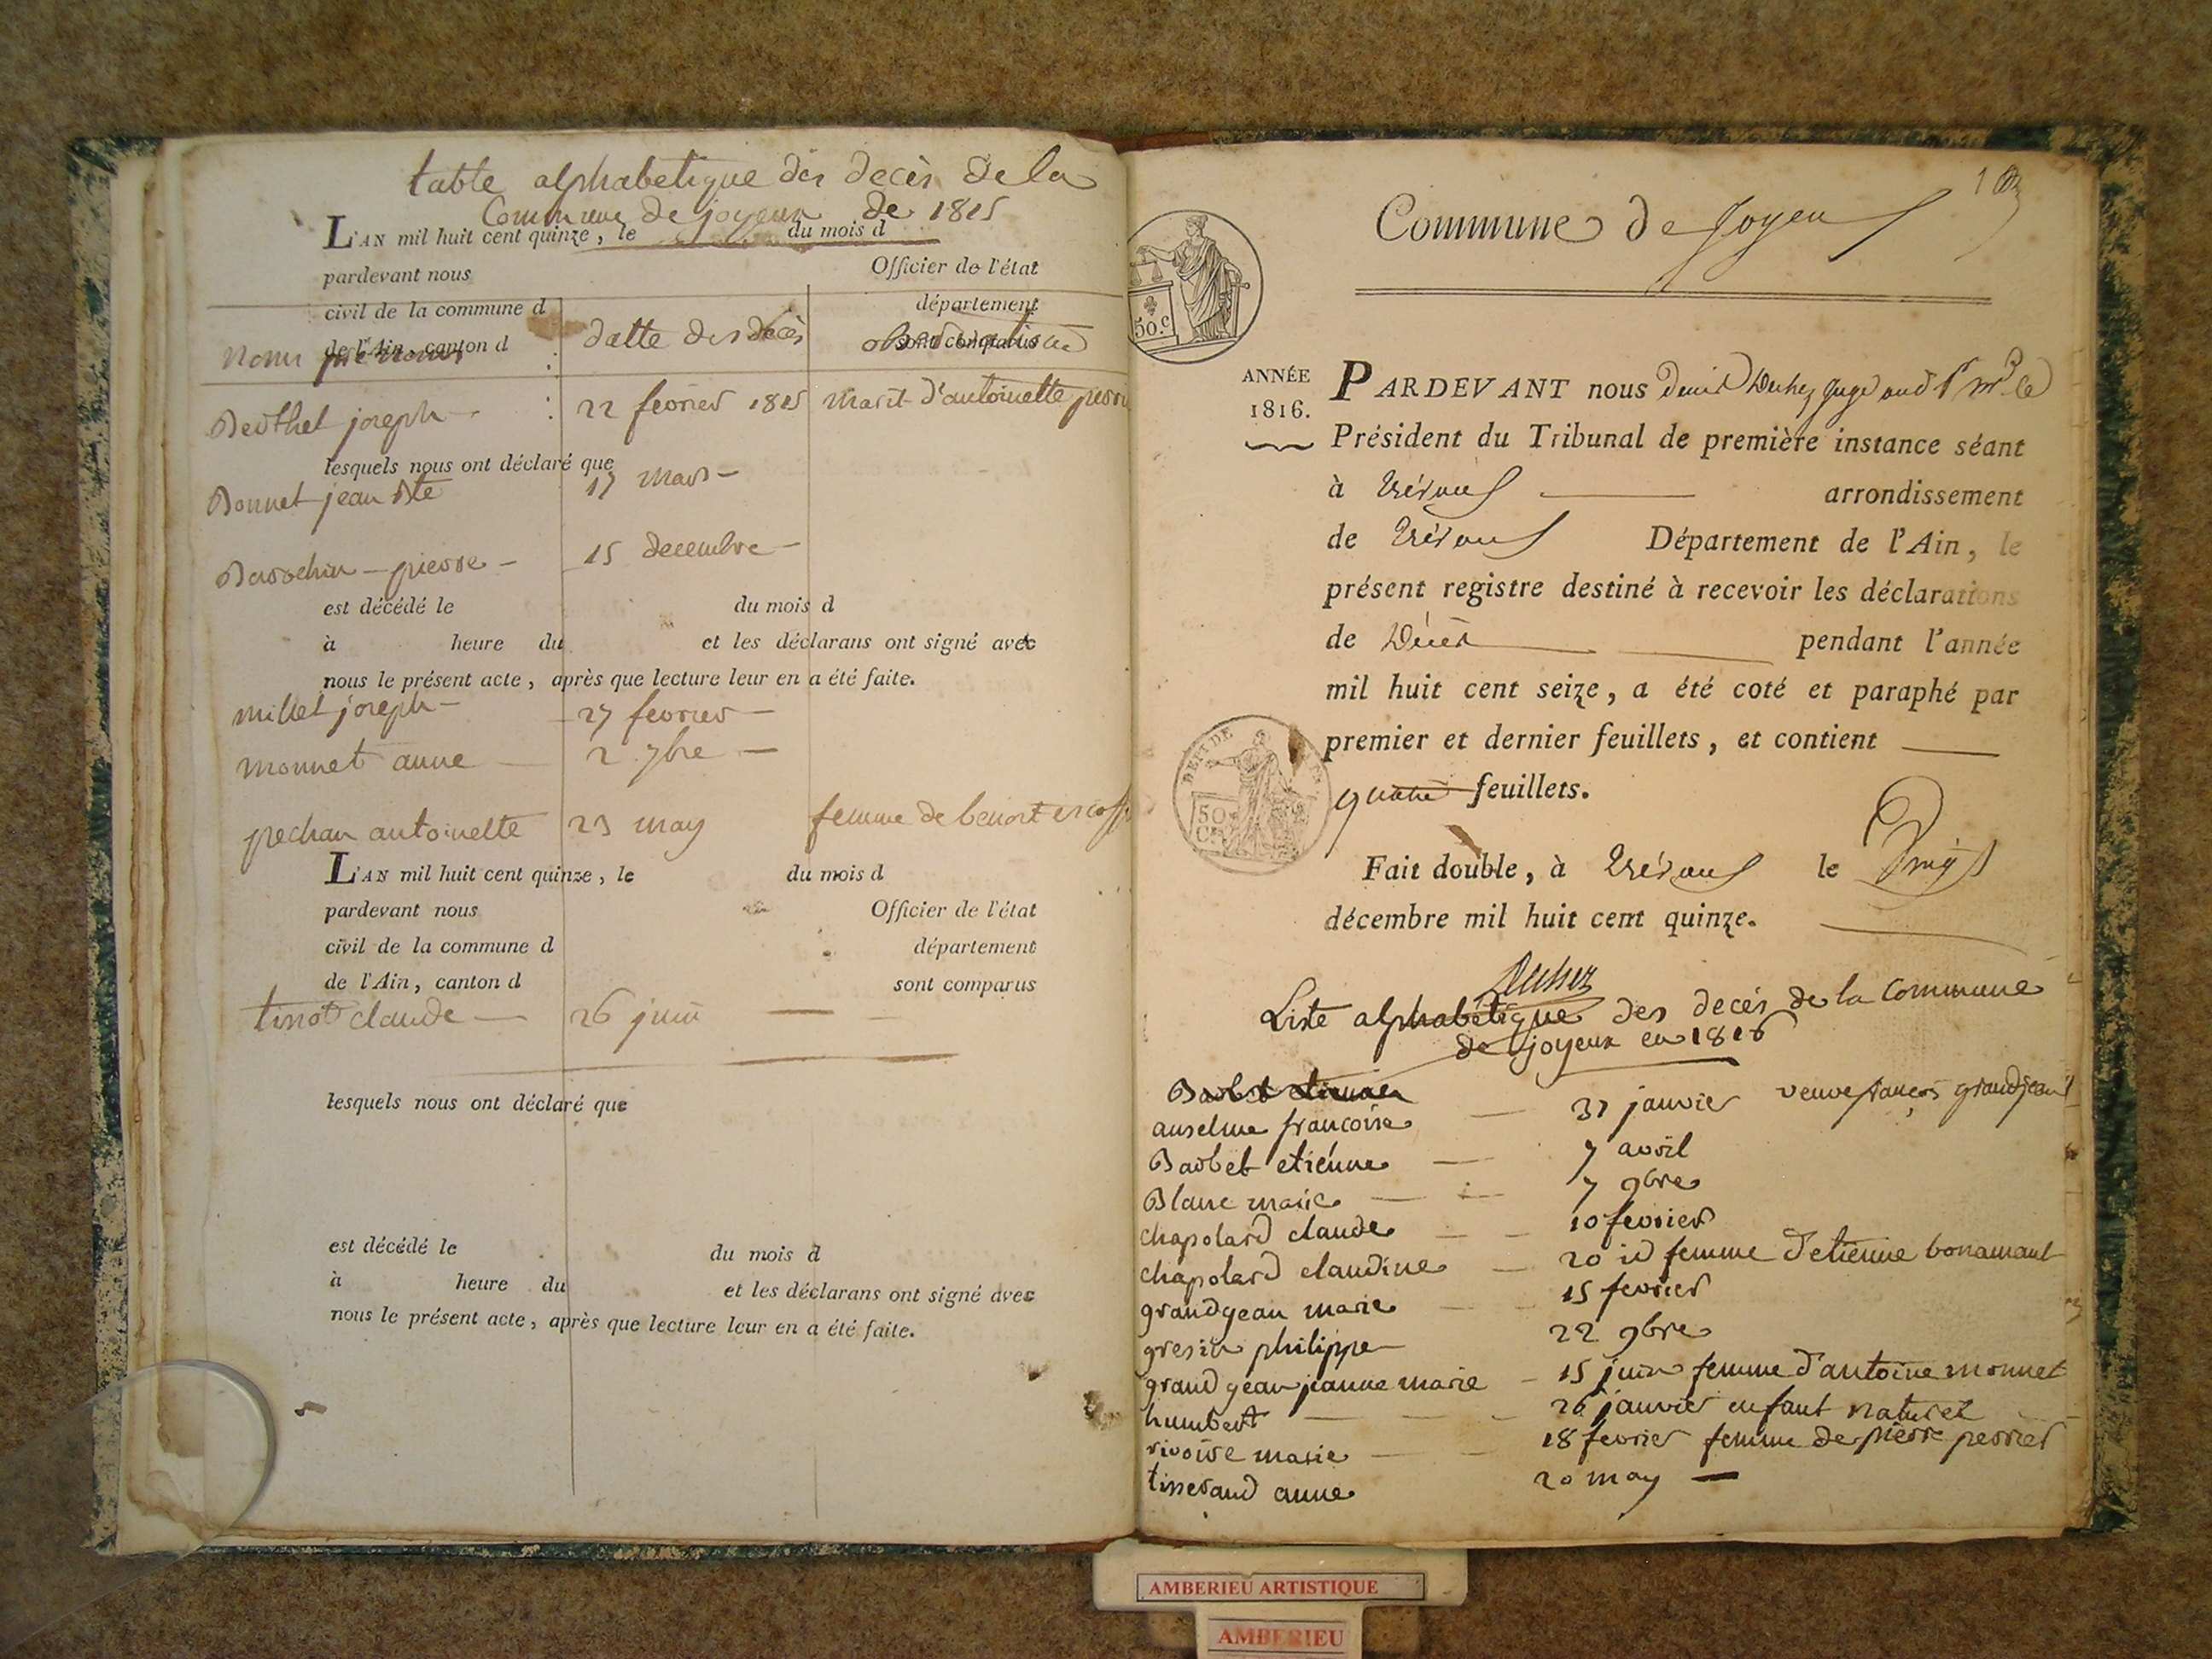 table alphabetique des decès de la
Commune de joyeux de 1815
L'AN mil huit cent quinze, le du mois d
pardevant nous Officier de l'état
civil de la commune d département
de l'Ain, canton d sont comparus
noms prenoms datte des decès observations
Berthet joseph 22 fevrier 1815 marit d'antoinette
lesquels nous ont déclaré que
Bonnet jean Bte 17 mars
pierre 15 decembre
est décédé le du mois d
à heure du et les déclarans ont signé avec
nous le présent acte, après que lecture leur en a été faite.
millet joseph 27 fevrier
monnet anne 2 7bre
pechan antoinette 23 may femme de benoit
L'AN mil huit cent quinze, le du mois d
pardevant nous Officier de l'état
civil de la commune d département
de l'Ain, canton d sont comparus
tinot claude 26 juin
lesquels nous ont déclaré que
est décédé le du mois d
à heure du et les déclarans ont signé avec
nous le présent acte, après que lecture leur en a été faite.
1
Commune de Joyeux
50.c
ANNÉE
1816.
PARDEVANT nous
Président du Tribunal de première instance séant
à Trévoux arrondissement
de Trévoux Département de l'Ain, le
présent registre destiné à recevoir les déclarations
de Décès pendant l'année
mil huit cent seize, a été coté et paraphé par
premier et dernier feuillets, et contient
quatre feuillets.
50
Fait double, à Trévoux le
décembre mil huit cent quinze.
Liste alphabétique des decés de la commune
de joyeux en 1816
Barbet etienne
anselme francoise 31 janvier veuve françois grandjean
Barbet etiénne 7 avril
Blanc marie 7 9bre
chapolard claude 10 fevrier
chapolard claudine 20 id femme d'etienne bonamant
grandgean marie 15 fevrier
gresin philippe 22 9bre
grandgean jeanne marie 15 juin femme d'antoine monnet
humbert 26 janvier enfant naturel
rivoire marie 18 fevrier femme de pierre perrier
tisserand anne 20 may
AMBERIEU ARTISTIQUE
AMBERIEU